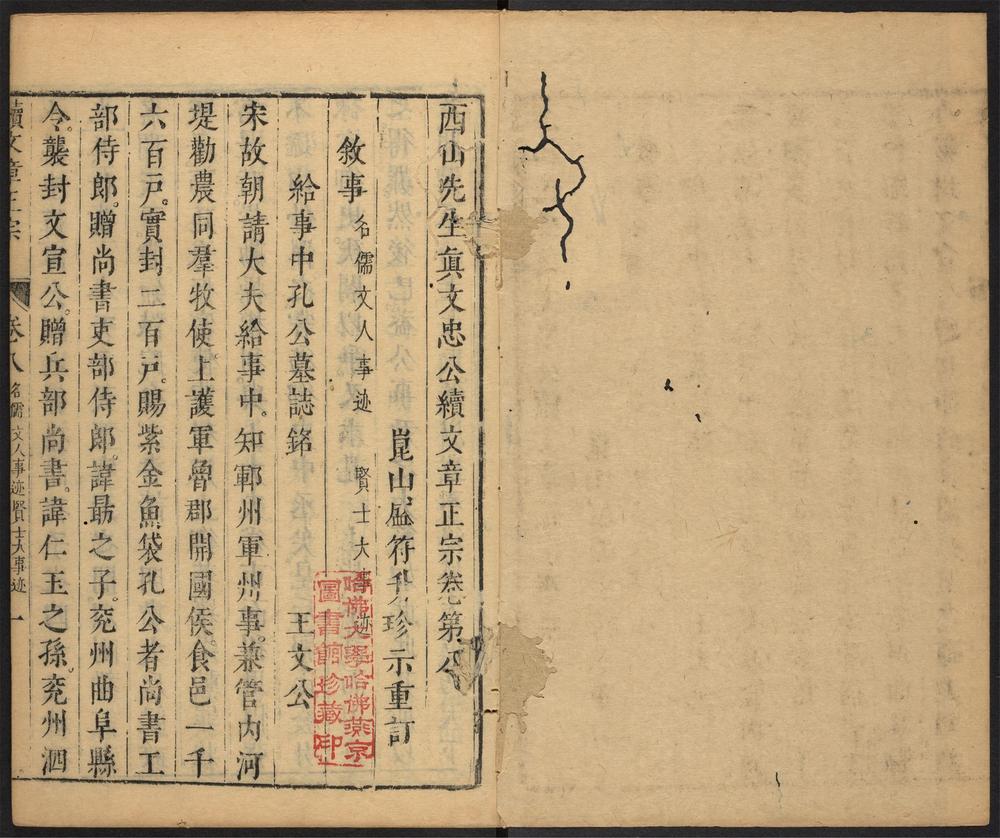 西山先生眞文忠公續文章正宗卷第八
崑山盛符升珍示重訂
敘事 名儒文人事迹 賢士大事迹
給事中孔公墓誌銘 王文公
宋故朝請大夫給事中。知鄆州軍州事。兼管内河
堤勸農同羣牧使上護軍魯郡開國侯。食邑一千
六百戸。實封二百戸。賜紫金魚袋孔公者尚書工
部侍郎。贈尚書吏部侍郎。諱勗之子。兖州曲阜縣
令。襲封文宣公。贈兵部尚書。諱仁玉之孫。兖州泗
續文章正宗 卷八 名儒文人事迹賢士大事迹 一
哈佛大學哈佛燕京
圖書館珍藏印